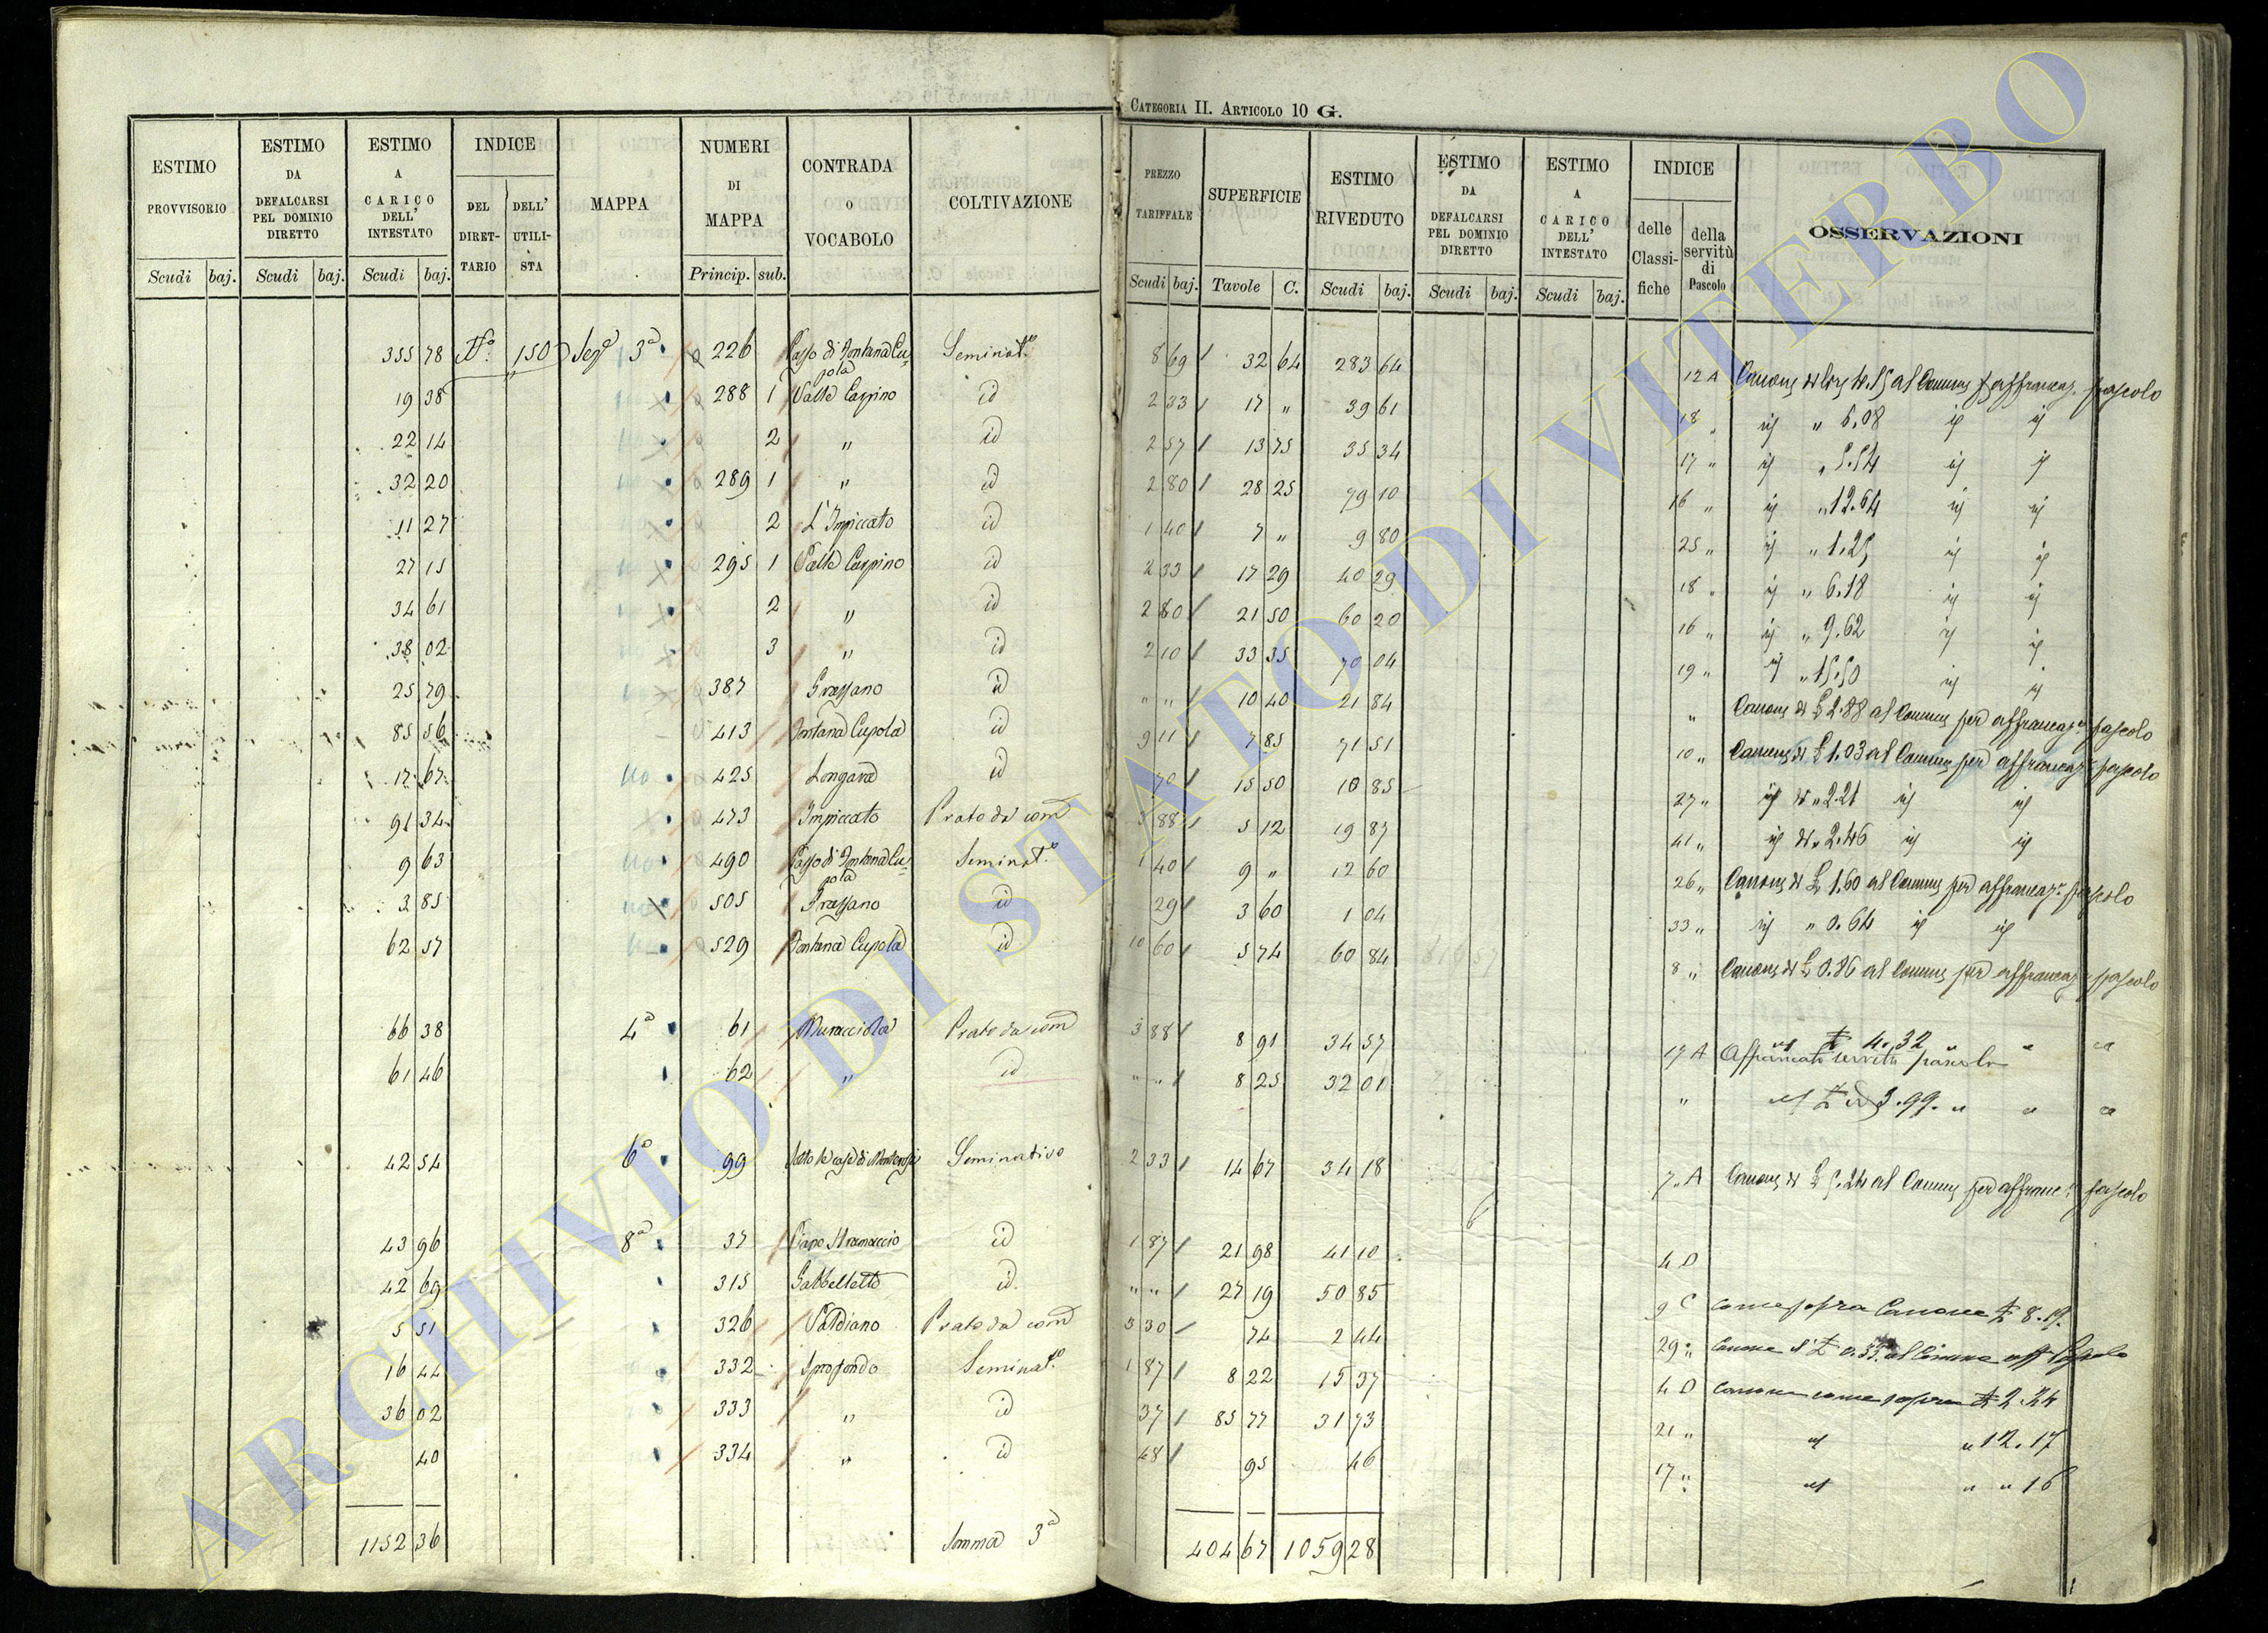 CATEGORIA II. ARTICOLO 10 G.
ESTIMO PROVVISORIO Scudi baj.
ESTIMO DA DEFALCARSI PEL DOMINIO DIRETTO Scudi baj.
ESTIMO A CARICO DELL' INTESTATO Scudi baj.
INDICE DEL DIRETTARIO DELL' UTILISTA
MAPPA
NUMERI DI MAPPA Princip. sub.
CONTRADA O VOCABOLO
COLTIVAZIONE
PREZZO TARIFFALE Scudi baj.
SUPERFICIE Tavole C.
ESTIMO RIVEDUTO Scudi baj.
ESTIMO DA DEFALCARSI PEL DOMINIO DIRETTO Scudi baj.
ESTIMO A CARICO DELL' INTESTATO Scudi baj.
INDICE delle Classifiche della servitù di Pascolo
OSSERVAZIONI
355 78 No. 150 Seze 3a 226 Passo di Fontana Cupola Seminato 8 69 32 64 283 64 12 A Canone al Comune pascolo
19 38 288 1 Valle Carpino id 2 33 17 " 39 61 18 " id " 6.08 id id
22 14 2 " id 2 57 13 75 35 34 17 " id " 5.54 id id
32 20 289 1 " id 2 80 28 25 79 10 16 " id " 12.64 id id
11 27 2 L'Impiccato id 1 40 7 " 9 80 25 " id " 1.25 id id
27 15 295 1 Valle Carpino id 2 33 17 29 40 29 18 " id " 6.18 id id
34 61 2 " id 2 80 21 50 60 20 16 " id " 9.62 id id
38 02 3 " id 2 10 33 35 70 04 19 " id " 15.50 id id
25 79 387 Grassano id " " 10 40 21 84 " Canone di £ 2.88 al Comune per affrancaze pascolo
85 56 413 Fontana Cupola id 9 11 7 85 71 51 10 " Canone di £ 1.03 al Comune per affrancaze pascolo
17 67 425 Longara id 70 15 50 10 85 27 " id di " 2.21 id id
91 34 473 Impiccato Prato da come 3 88 5 12 19 87 41 " id di " 2.46 id id
9 63 490 Passo di Fontana Cupola Seminato 1 40 9 " 12 60 26 " Canone di £ 1.60 al Comune per affrancaze pascolo
3 85 505 Grassano id 29 3 60 1 04 33 " id " 0.64 id id
62 57 529 Fontana Cupola id 10 60 5 74 60 84 8 " Canone di £ 0.86 al Comune per affrancaze pascolo
66 38 4a 61 Muracciola Prato da come 3 88 8 91 34 57 17 A Affrancato servitù pascolo £ 4.32 " "
61 46 62 " id " " 8 25 32 01 " £ 3.99 " " "
42 54 6a 99 Sotto le case di Monterosi Seminativo 2 33 14 67 34 18 7 A Canone di £ 5.24 al Comune per affrance pascolo
43 96 8a 37 Piano Stramaccio id 1 87 21 98 41 10 4 D
42 69 315 Gabbelletto id " " 27 19 50 85 9 C come sopra Canone £ 8.19
5 51 326 Valdiano Prato da come 3 30 74 2 44 29 " Canone di £ 0.33 al Comune aff Pascolo
16 44 332 Sprofondo Seminato 1 87 8 22 15 37 4 D Canone come sopra £ 2.24
36 02 333 " id 37 85 77 31 73 21 " " 12.17
40 334 " id 48 95 46 17 " " " 16
1152 36 Somma 3a 404 67 1059 28
ARCHIVIO DI STATO DI VITERBO